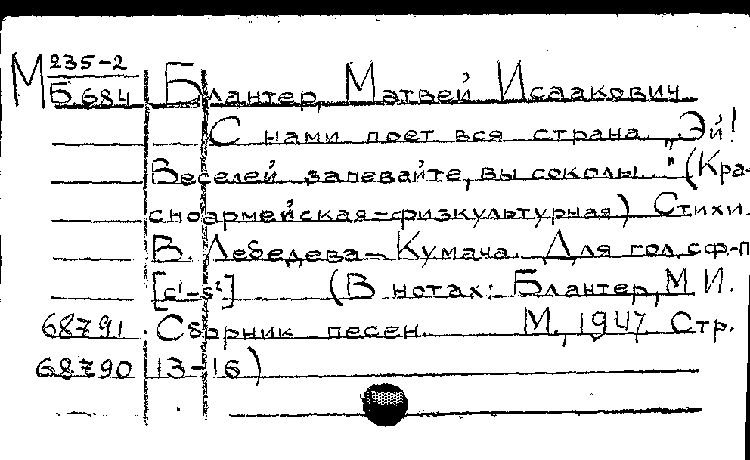 М 235-2
Б684 Блантер, Матвей Исаакович
С нами поет вся страна. „Эй!
Веселей запевайте, вы соколы!" (Кра-
сноармейская-физкультурная) Стихи.
В. Лебедева-Кумача. Для гол. с ф.-п
[c¹-s²] (В нотах: Блантер, М. И.
68791. Сборник песен. М., 1947 Стр.
68790 13-16)